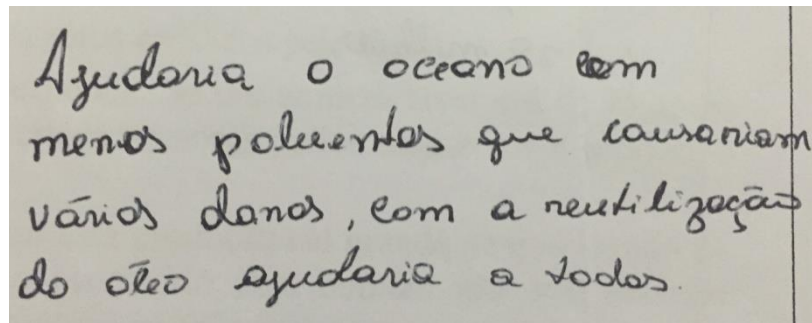 Ajudaria o oceano com
menos poluentos que causariam
vários danos, com a reutilização
do óleo ajudaria a todos.